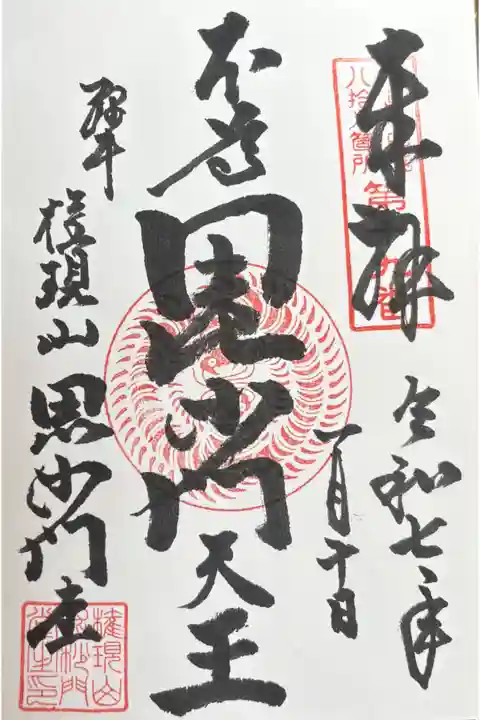 奉拝
令和七年
一月十日
本尊
毘沙門
天王
犂
権現山
毘沙門堂
八拾八箇所
第
権現山
毘沙門
堂主印